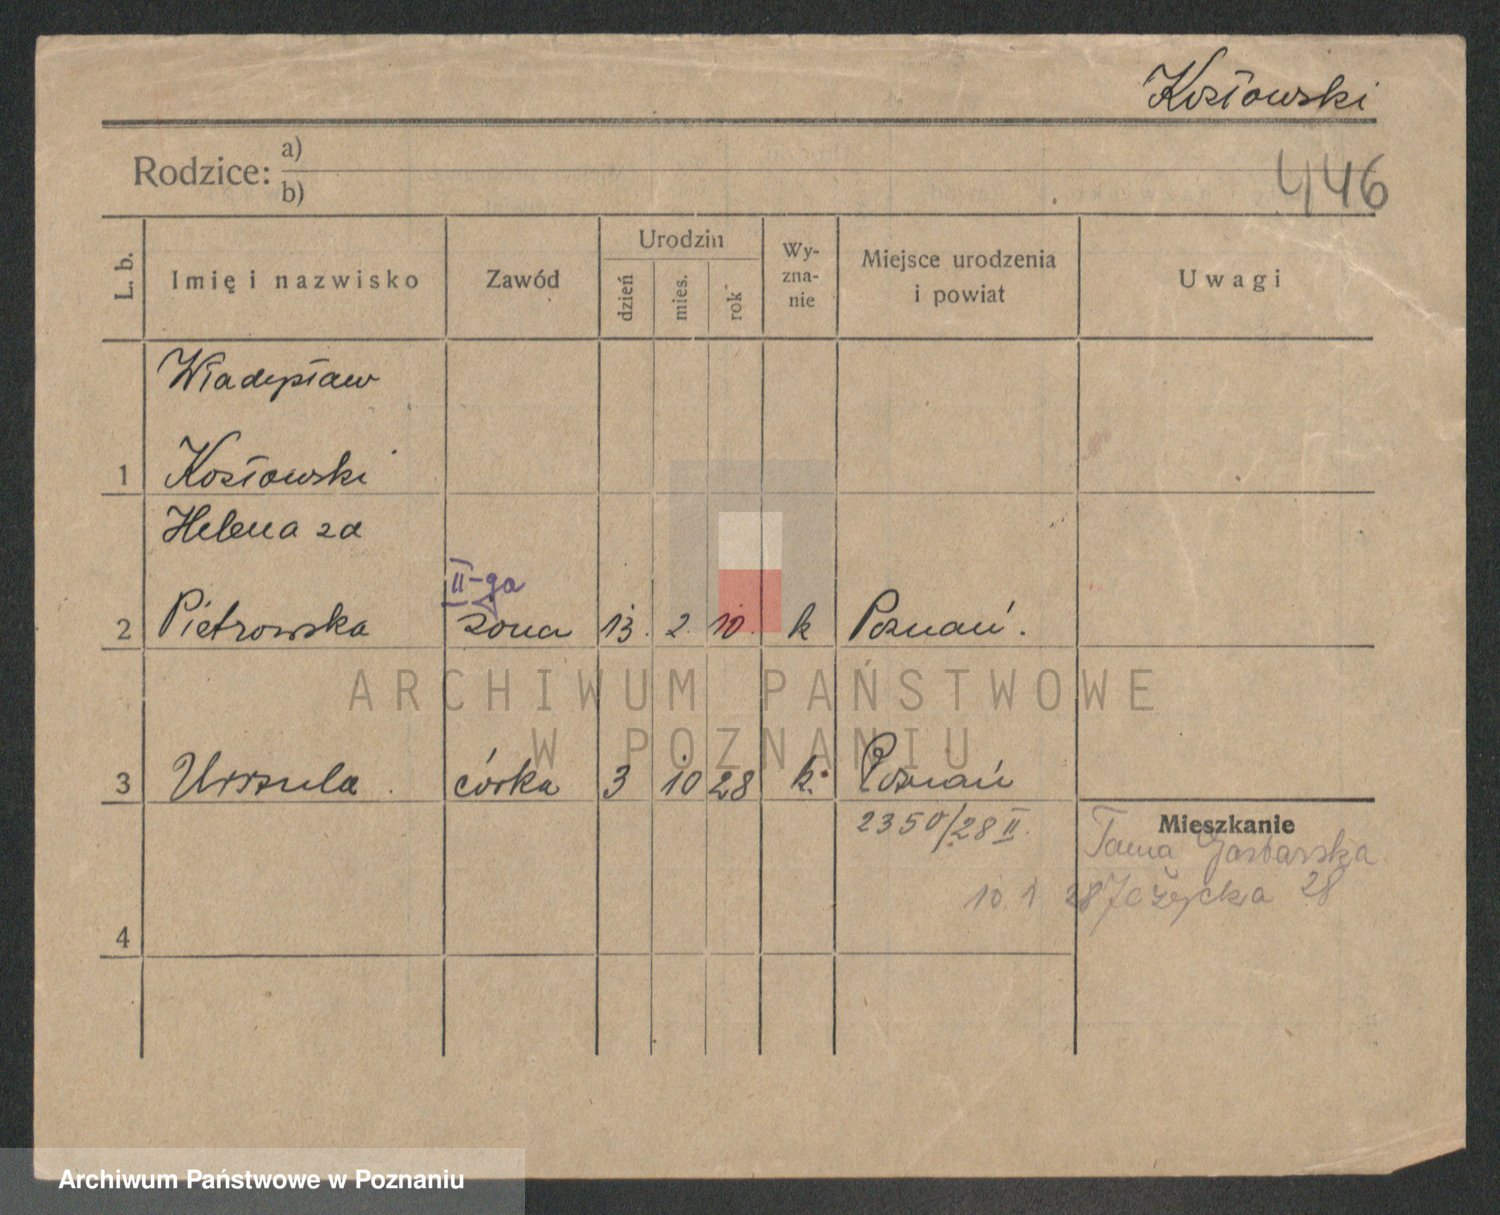 Kozłowski
446
Rodzice: a)
b)
L. b.
Imię i nazwisko
Zawód
Urodzin
dzień
mies.
rok
Wy-
zna-
nie
Miejsce urodzenia
i powiat
Uwagi
Władysław
1 Kozłowski
Helena za
II-ga
2 Pietrowska żona 13. 2. 10. k Poznań.
ARCHIWUM PAŃSTWOWE
W POZNANIU
3 Urszula córka 3 10 28 k. Poznań
2350/28 II.
Mieszkanie
Tama Garbarska
10. 1 28 Jeżycka 28
4
Archiwum Państwowe w Poznaniu